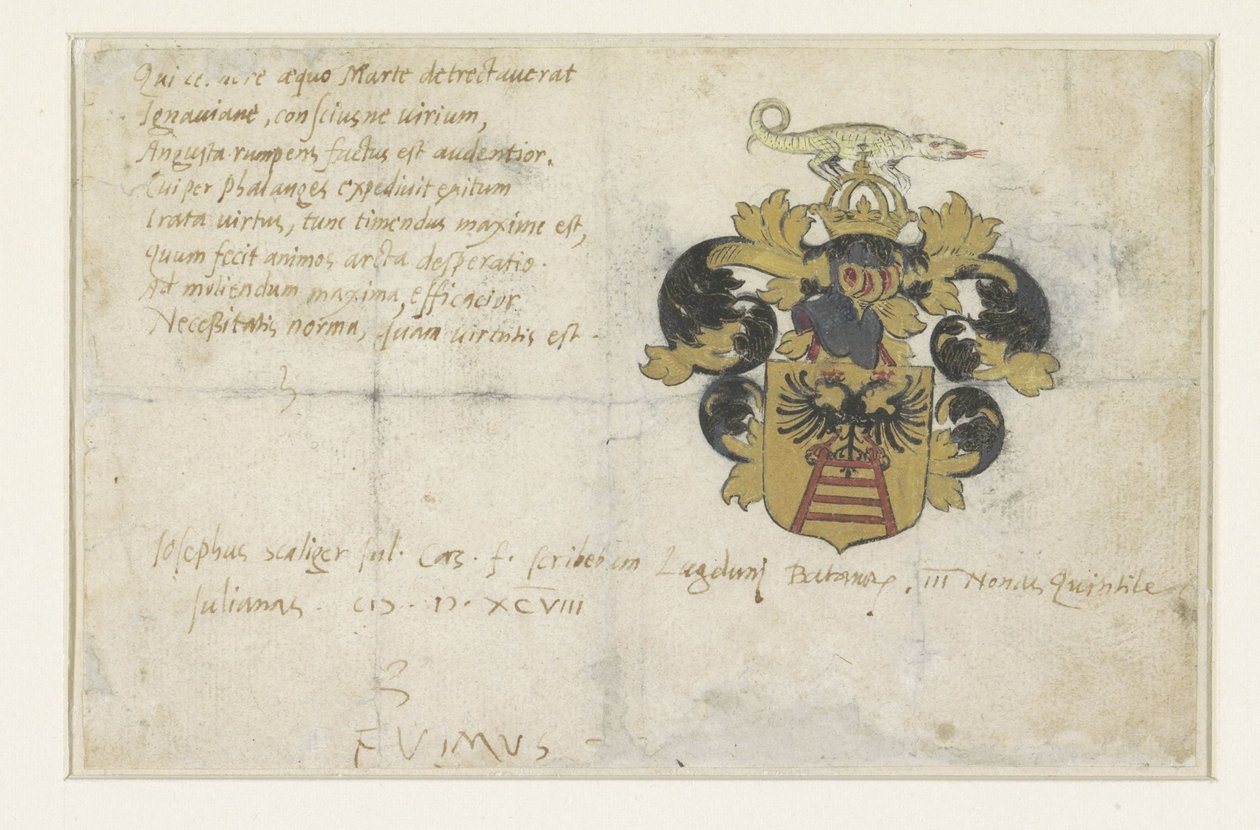 Qui æquo Marte detrectauerat
Ignauiane, consciusne uirium,
Angusta rumpens factus est audentior.
Cui per phalanges expediuit exitum
Irata virtus, tunc timendus maxime est,
Quum fecit animos arcta desperatio.
Ad moliendum maxima, efficacior
Necessitatis norma, quam uirtutis est.
Iosephus Scaliger Iul. Cæs. f. scribebam Lugduni Batauor. III Nonas Quintile
Iulianas. CIƆ. IƆ. XCVIII
FVIMVS